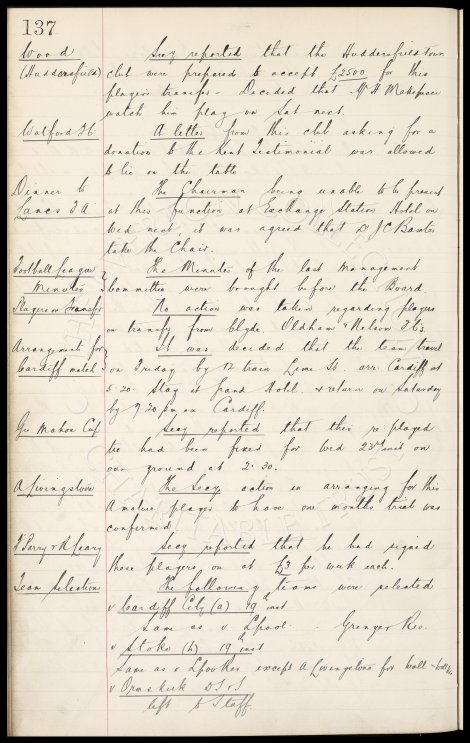 137
Wood Secy reported that the Huddersfield town
(Huddersfield) club were prepared to accept £2500 for this
players transfer - Decided that Mr H Makepeace
watch him play on Sat next.
Watford FC A letter from this club asking for a
donation to the Kent Testimonial was allowed
to lie on the table
Dinner to The Chairman being unable to be present
Lancs FA at this function at Exchange Station Hotel on
Wed next, it was agreed that Dr J C Baxter
take the Chair.
Football League The Minutes of the last Management
Minutes Committee were brought before the Board
Players on Transfer No action was taken regarding players
on transfer from Clyde, Oldham & Nelson FCs.
Arrangement for It was decided that the team travel
Cardiff match on Friday by 12 train Lime St. arr. Cardiff at
5.20 Stay at Grand Hotel & return on Saturday
by 7.30 pm ex Cardiff.
Geo Mahon Cup Secy reported that this re played
tie had been fixed for Wed 23rd inst on
our ground at 2.30.
A Livingstone The Secy action in arranging for this
Amateur player to have one months trial was
confirmed
Parry & A Leary Secy reported that he had signed
these players on at £3 per week each.
Team Selection The following teams were selected
v Cardiff City (a) 19th inst
Same as v Lpool. Grenyer Res.
v Stoke (h) 19th inst
Same as v Lpool Res except A Livingstone for
v Ormskirk D S S
left to Staff